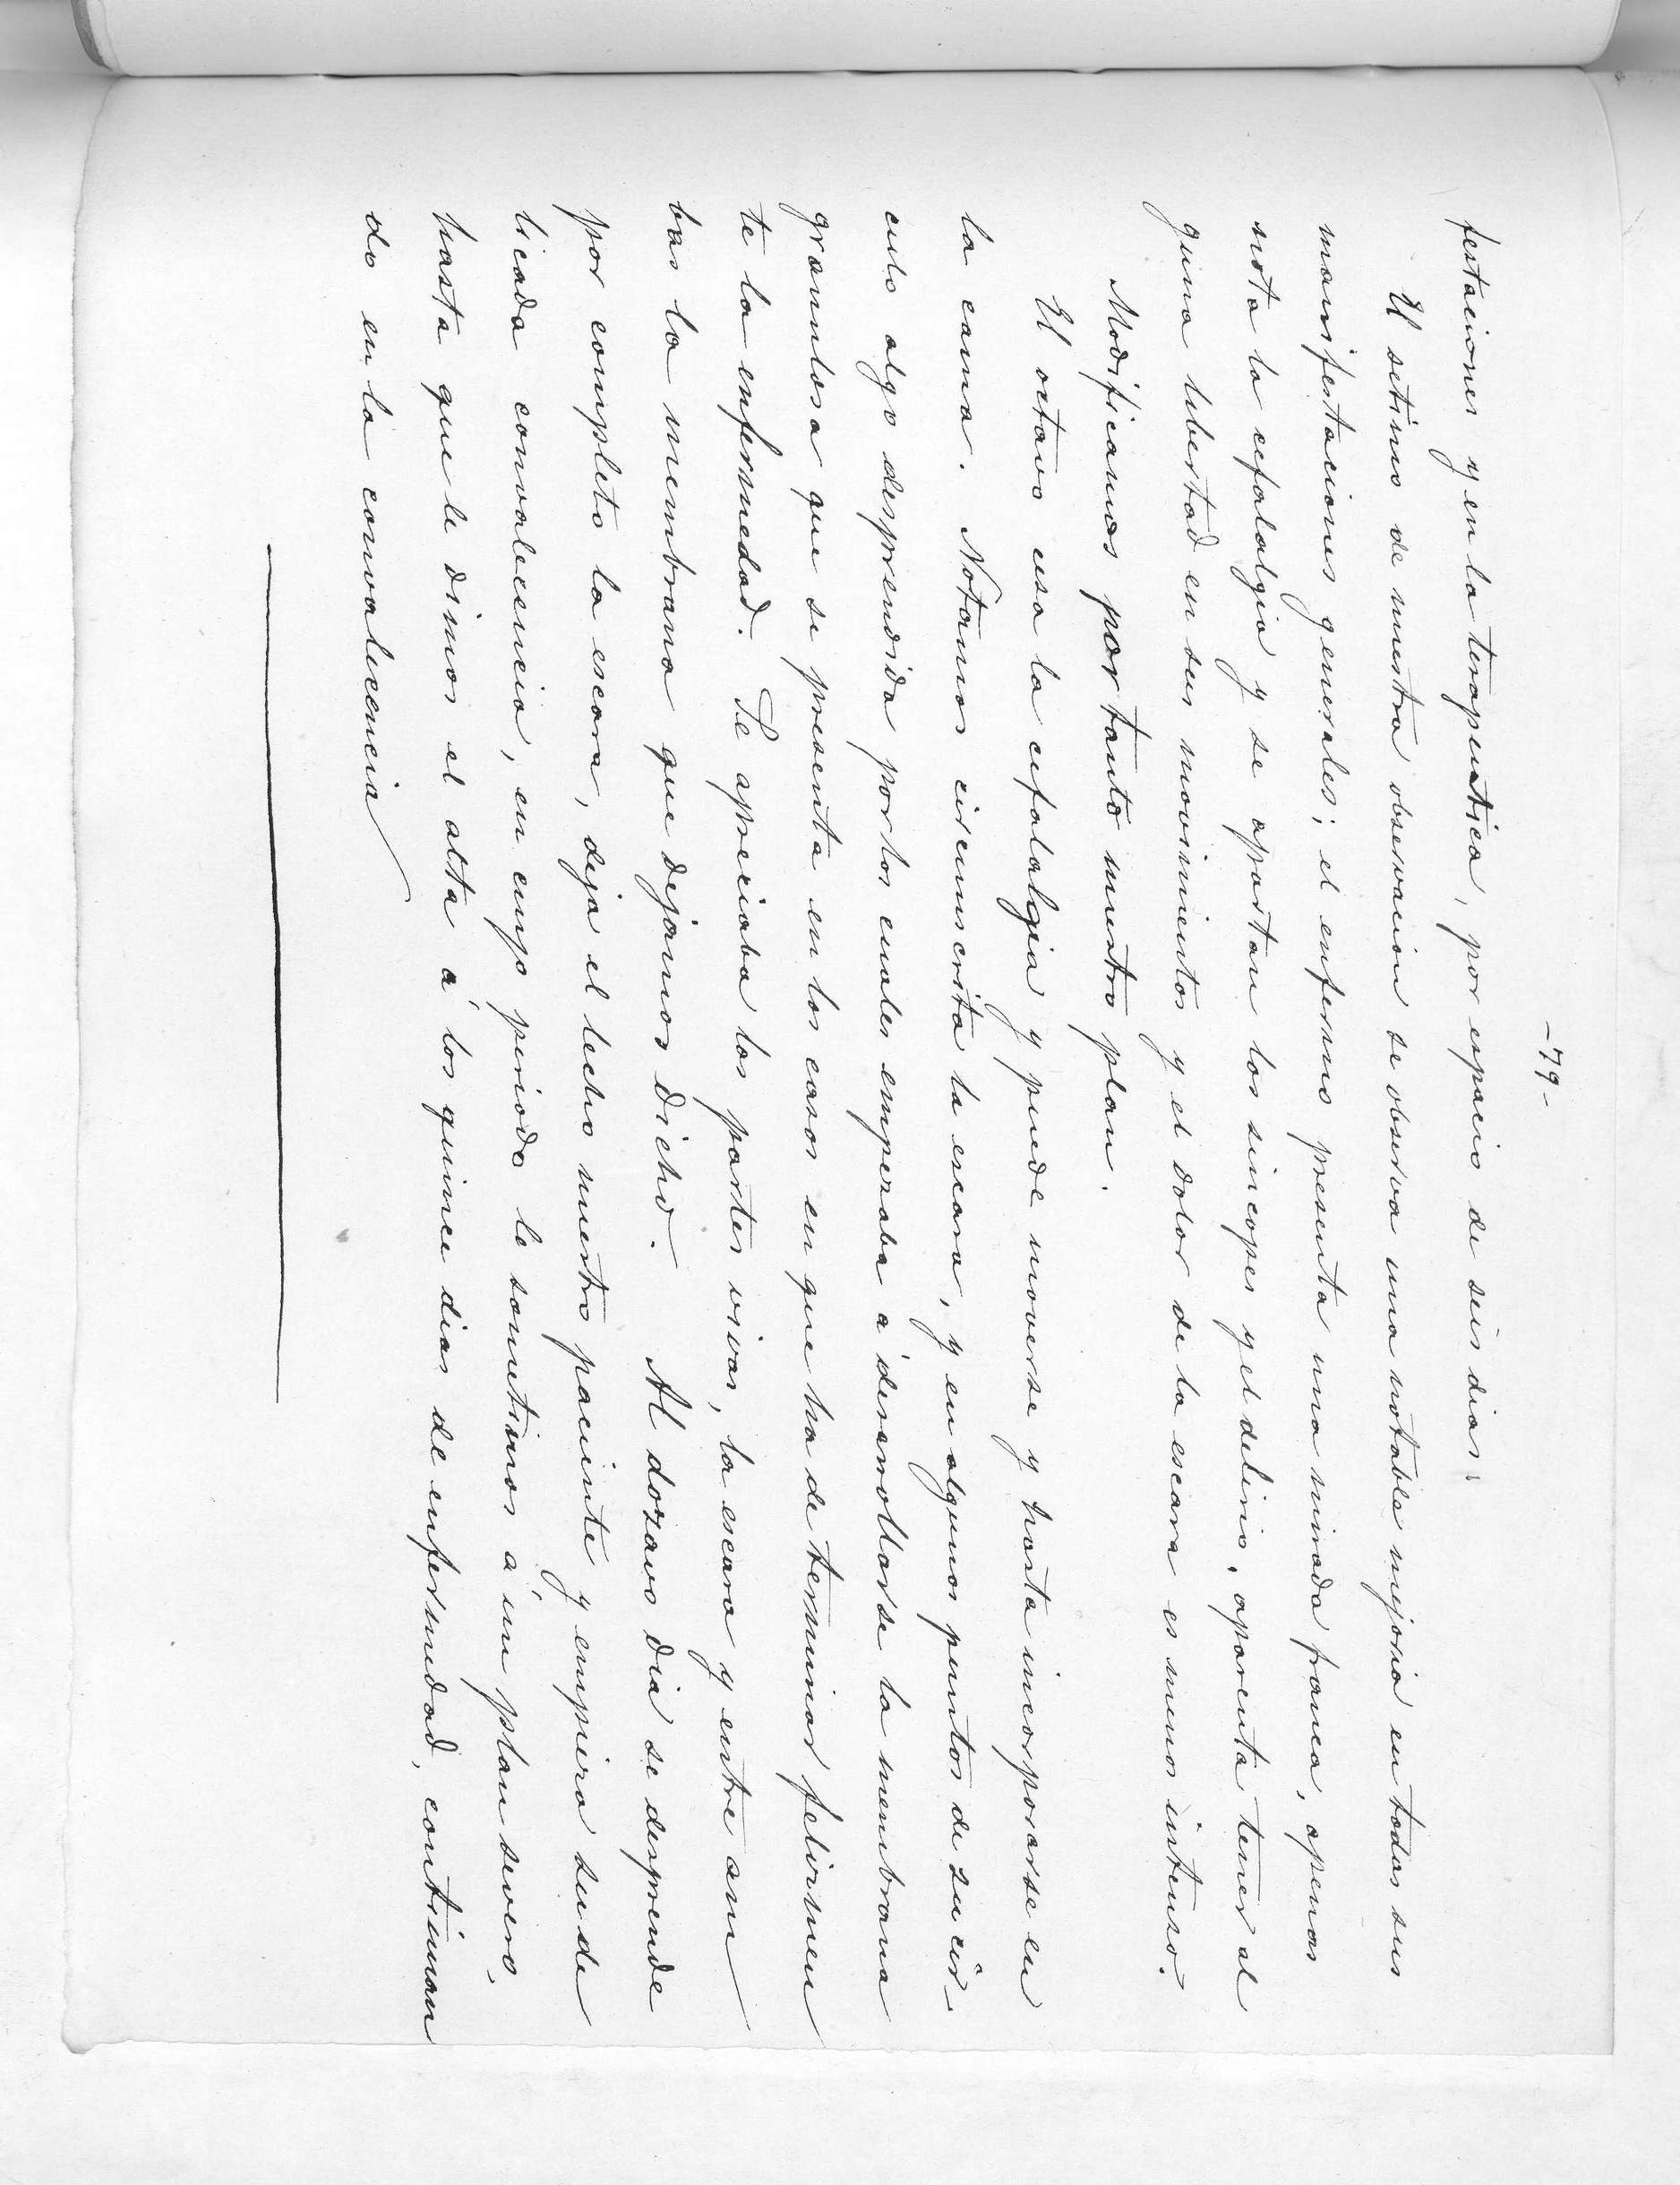 -79-
festaciones y en la terapeutica, por espacio de seis dias:
El setimo de nuestra observacion se observa una notable mejoria en todas sus
manifestaciones generales; el enfermo presenta una mirada franca, apenas
nota la cefalalgia y se apartan los sincopes y el delirio, aparenta tener al
guna libertad en sus movimientos y el dolor de la escara es menos intenso.
Modificamos por tanto nuestro plan.
El octavo cesa la cefalalgia y puede moverse y hasta incorporarse en
la cama. Notamos circunscrita la escara, y en algunos puntos de su cir-
culo algo desprendida por los cuales empezaba á desarrollarse la membrana
granulosa que se presenta en los casos en que ha de terminar felizmen
te la enfermedad. Se apreciaba las partes vivas, la escara y entre am
bas la membrana que dejamos dicho. Al dozavo dia se desprende
por completo la escara, deja el lecho nuestro paciente y empieza su de
licada convalecencia, en cuyo periodo le somtimos á un plan severo,
hasta que le dimos el alta á los quince dias de enfermedad, continuan
do en la convalecencia